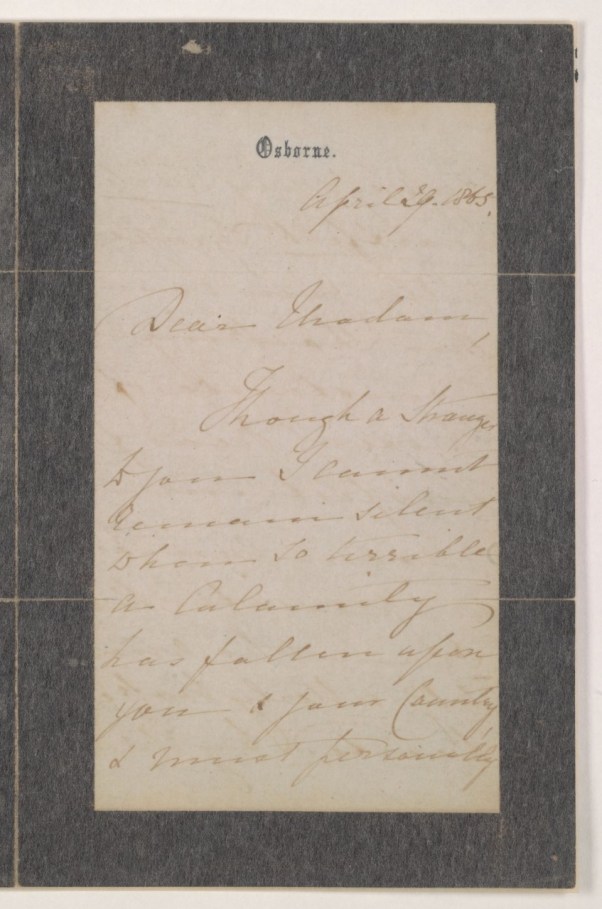 Osborne.
April 29. 1865.
Dear Madam,
Though a Stranger
to you I cannot
remain silent
when so terrible
a Calamity
has fallen upon
you & your Country
& must personally